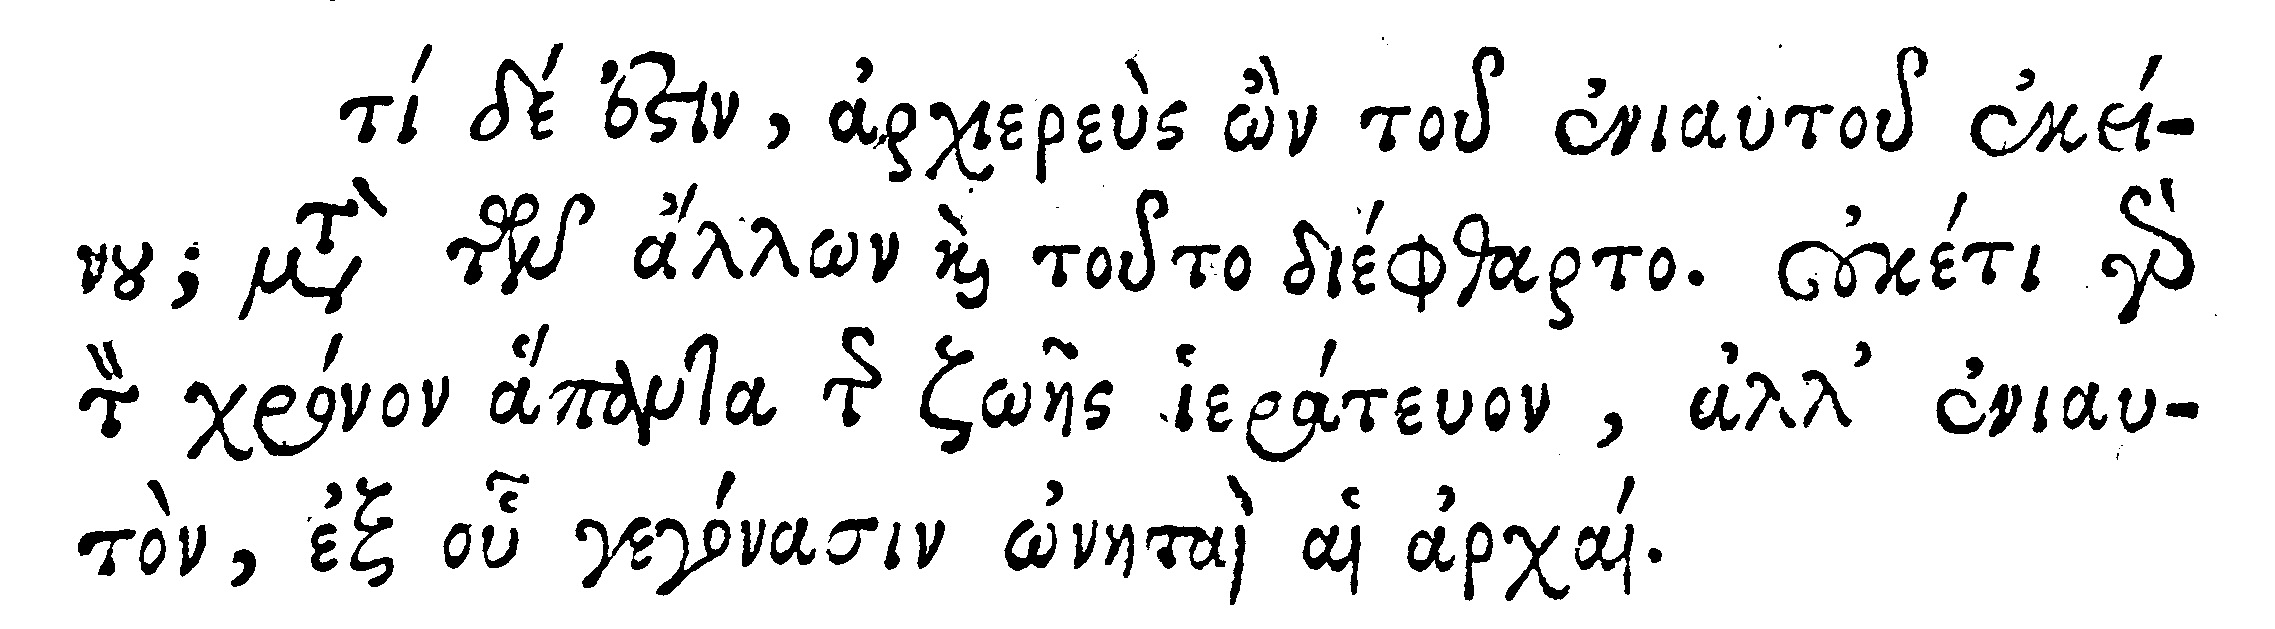 τί δέ ἐστιν, ἀρχιερεὺς ὢν τοῦ ἐνιαυτοῦ ἐκεί-
νου; μετὰ τῶν ἄλλων καὶ τοῦτο διέφθαρτο. οὐκέτι γὰρ
τὸν χρόνον ἅπαντα τῆς ζωῆς ἱεράτευον, ἀλλ’ ἐνιαυ-
τὸν, ἐξ οὗ γεγόνασιν ὠνηταὶ αἱ ἀρχαί.